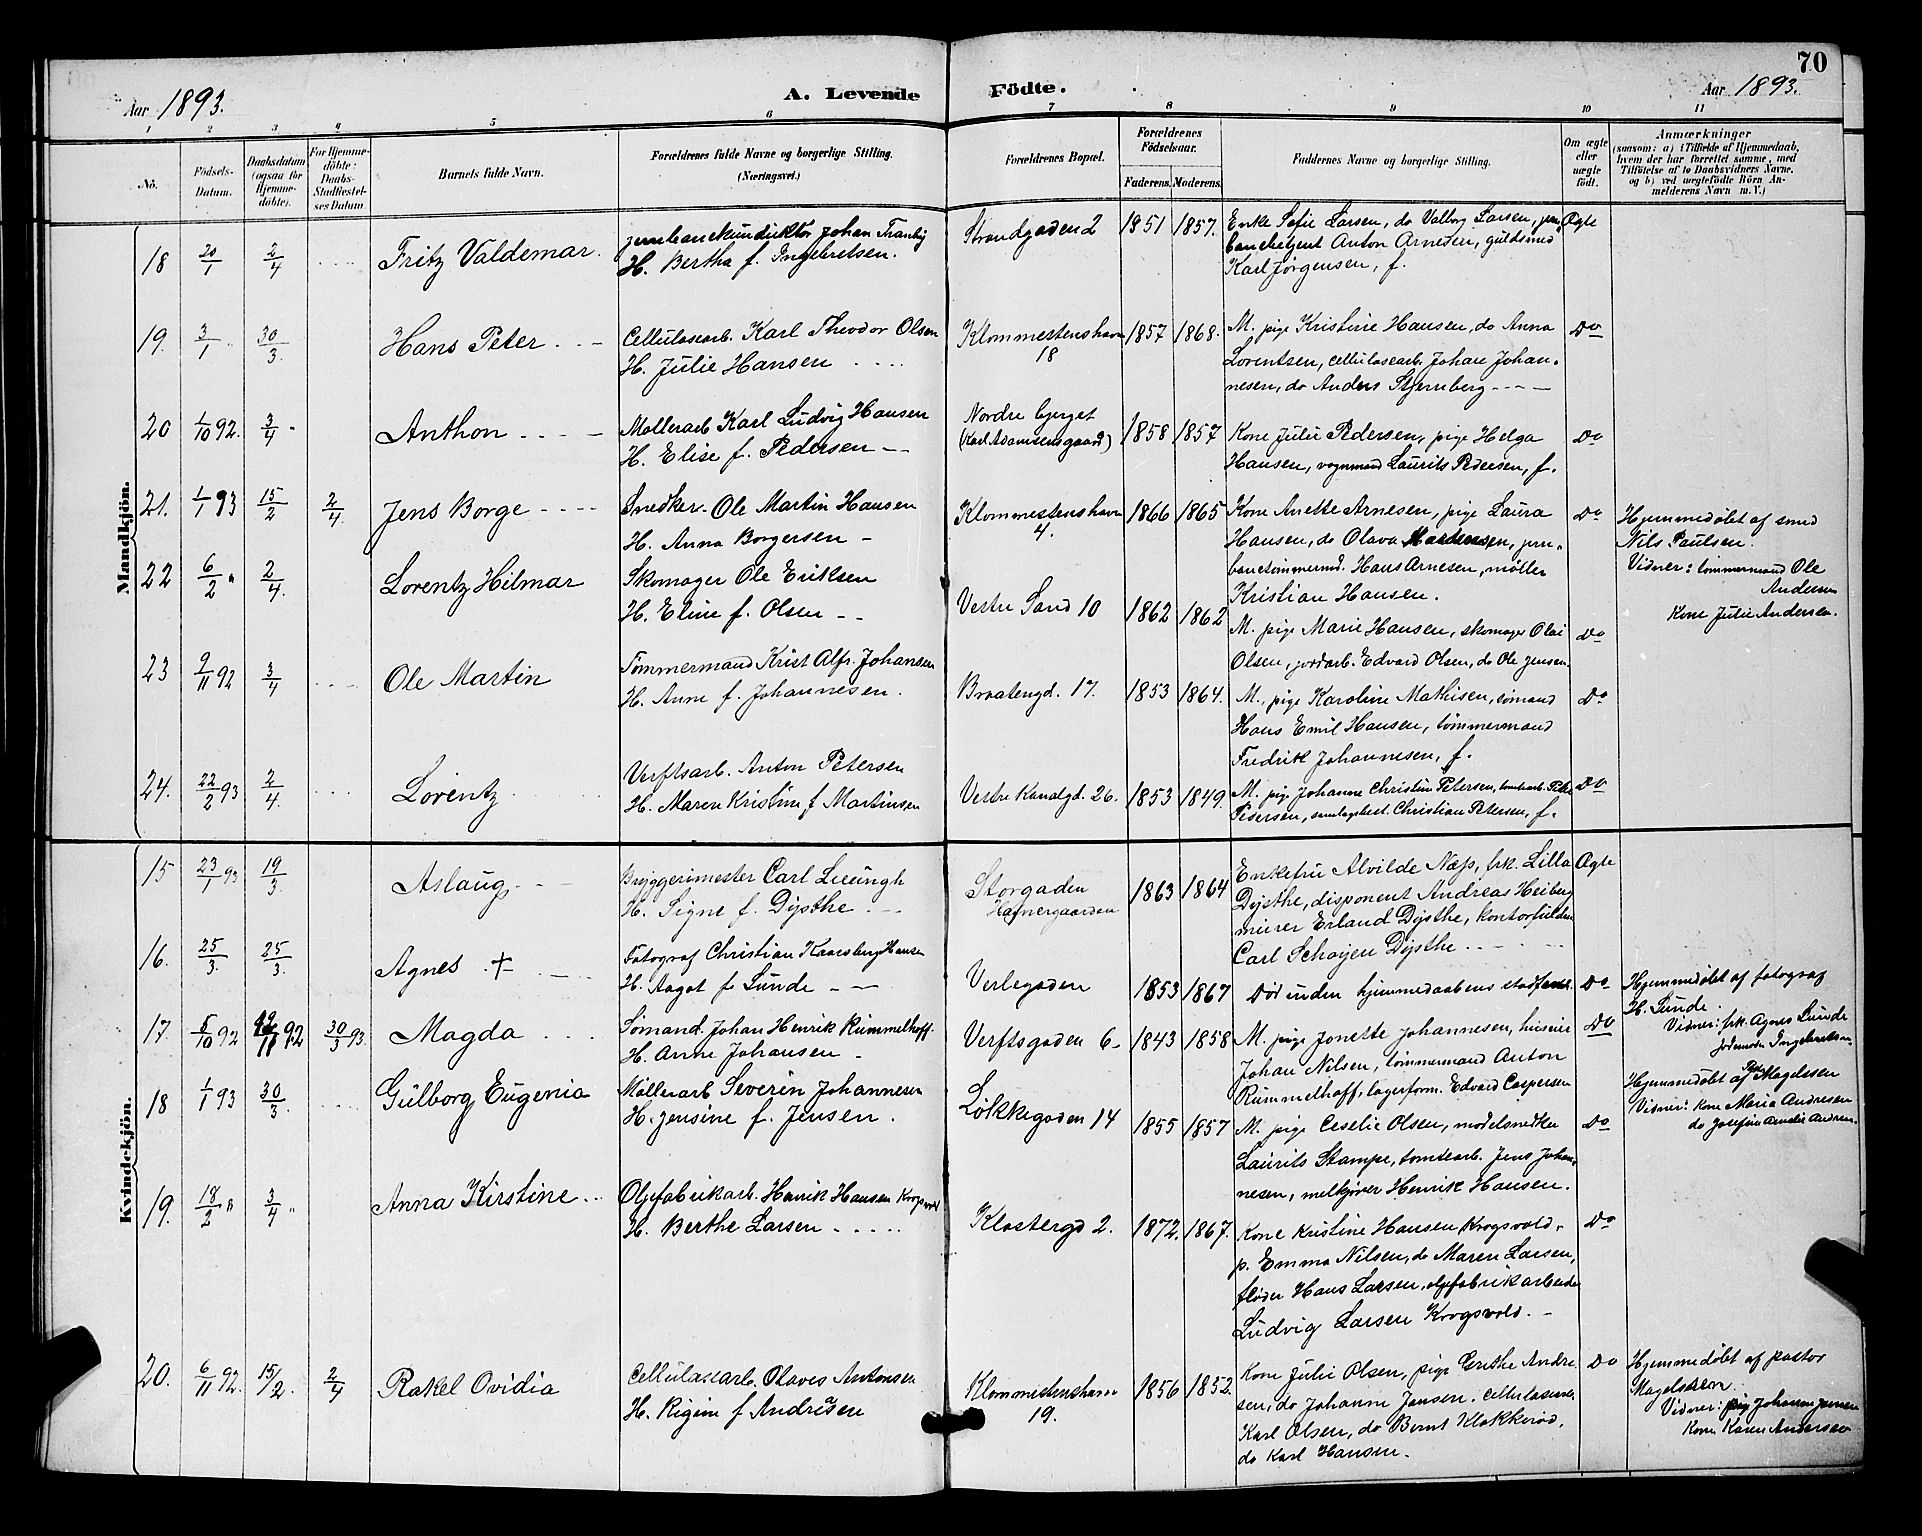 70
Aar 1893.
A. Levende Födte.
Aar 1893.
1 2 3 4 5 6 7 8 9 10 11
No.
Födsels-Datum.
Daabsdatum (ogsaa for Hjemme-döbte).
For Hjemme-döbte: Daabs-Stadfæstel-ses Datum.
Barnets fulde Navn.
Forældrenes fulde Navne og borgerlige Stilling.
(Næringsvei.)
Forældrenes Bopæl.
Forældrenes Födselsaar.
Faderens. Moderens.
Faddernes Navne og borgerlige Stilling.
Om ægte eller uægte født.
Anmærkninger
(saasom: a) i Tilfælde af Hjemmedaab, hvem der har forrettet samme, med Tilföielse af to Daabsvidners Navne, og b) ved uægtefödte Börn Anmelderens Navn m. V.)
Mandkjön.
18 20/1 2/4 Fritz Valdemar.
jernbanekonduktör Johan Tranby
H. Bertha f. Ingebretsen.
Strandgaden 2 1851 1857.
Enke Sofie Larsen, do Valborg Larsen, jern-
banebetjent Anton Arnesen, guldsmed
Karl Jørgensen, f.
Ægte
19. 3/1 30/3 Hans Peter
Cellulosearb. Karl Theodor Olsen
H. Julie Hansen
Klommestenshavn
18
1857 1868.
M. pige Kristine Hansen, do Anna
Lorentsen, cellulosearb. Johan Johan-
nesen, do Anders Stjernberg
Do
20 1/10 92. 3/4 Anthon
Møllerarb Karl Ludvig Hansen
H. Elise f. Pedersen
Nordre bjerget
(Karl Adamsensgaard)
1858 1857
Kone Julie Pedersen, pige Helga
Hansen, vognmand Laurits Pedersen, f.
Do
21. 1/1 93 15/2 2/4. Jens Borge
Snedker. Ole Martin Hansen
H. Anna Borgersen
Klommestenshavn
4.
1866 1865
Kone Anette Arnesen, pige Laura
Hansen, do Olava Martensen, jern-
banetømmermd. Hans Arnesen, møller
Kristian Hansen.
Do
Hjemmedøbt af smed
Nils Paulsen.
Vidner: tømmermand Ole
Andersen
Kone Julie Andersen.
22 6/2 " 2/4. Lorentz Hilmar
Skomager Ole Eriksen
H. Eline f. Olsen
Vestre Sand 10 1862 1862
M. pige Marie Hansen, skomager Olai
Olsen, jordarb. Edvard Olsen, do Ole Jensen
Do
23 9/11 92 3/4 Ole Martin
Tømmermand Krist Alfr. Johansen
H. Anne f. Johannesen.
Braatengd. 17. 1853 1864.
M., pige Karoline Mathisen, sømand
Hans Emil Hansen, tømmermand
Fredrik Johannesen, f.
Do
24. 22/2 93 2/4. Lorentz
Verftsarb. Anton Petersen
H. Maren Kristine f Martinsen
Vestre Kanalgd. 26. 1853 1849.
M. pige Johanne Christine Petersen, tomtearb. Peder
Pedersen, Christian Petersen, f.
Do
Kvindekjön.
15 23/1 93 19/3. Aslaug
Bryggerimester Carl Lieungh
H. Signe f. Dysthe
Storgaden
Hafnergaarden
1863 1864
Enkefru Alvilde Næss, frk. Lilla
Dysthe, disponent Andreas Heiberg
murer Erland Dysthe, kontorfuldm.
Carl Schøyen Dysthe
Ægte
16. 25/3. 25/3. Agnes +
Fotograf Christian Kaarsberg Hansen
H. Aagot f. Lunde
Verlegaden 1853 1867
Død inden hjemmedaabens stadfæst.
Do
Hjemmedøbt af fotograf
H. Lunde
Vidner: frk. Agnes Lunde
Jordemoder Ingebretsen
17. 5/10 92 11 92 30/3 93. Magda
Sømand. Johan Henrik Rummelhoff.
H. Anne Johansen
Verftsgaden 6 1843 1858
M. pige Jonette Johannesen, huseier
Johan Nilsen, tømmermand Anton
Rummelhoff, lagerform. Edvard Caspersen
Do
Hjemmedøbt af Magelssen
Vidner: Kone Maria Andresen
do Josefine Amalie Andresen.
18 1/1 93 30/3. Gulborg Eugenia
Møllerarb Severin Johannesen
H. Jensine f. Jensen.
Løkkegaden 14 1855 1857
M. pige Ceselie Olsen, modelsnedker
Laurits Stampe, tomtearb. Jens Johan-
nesen, melkjører Henrik Hansen.
Do
19. 18/2 " 3/4 " Anna Kirstine
Oljefabrikarb. Henrik Hansen Krogsvold
H. Berthe Larsen
Klostergd 2. 1872. 1867.
Kone Kristine Hansen Krogsvold,
p. Emma Nilsen, do Maren Larsen,
fløder Hans Larsen, oljefabrikarbeider
Ludvig Larsen Krogsvold.
Do
20. 6/11 92. 15/2. 2/4 Rakel Ovidia
Cellulosearb. Olaves Antonsen
H. Rigine f Andresen
Klommestenshavn
19.
1856 1852.
Kone Julie Olsen, pige Grethe Andre-
sen, do Johanne Jansen. cellulosearb
Karl Olsen, do Bernt Klokkerød,
do Karl Hansen.
Do
Hjemmedøbt af pastor
Magelssen.
Vidner: pige Johanne Jensen
Kone Karen Andersen